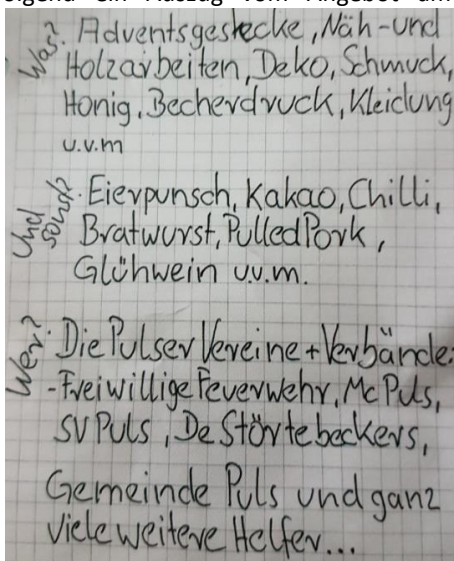 Was?: Adventsgestecke, Näh- und
Holzarbeiten, Deko, Schmuck,
Honig, Becherdruck, Kleidung
u.v.m
Und sonst?: Eierpunsch, Kakao, Chilli,
Bratwurst, Pulled Pork,
Glühwein u.v.m.
Wer?: Die Pulser Vereine + Verbände:
- Freiwillige Feuerwehr, Mc Puls,
SV Puls, De Störtebeckers,
Gemeinde Puls und ganz
viele weitere Helfer...